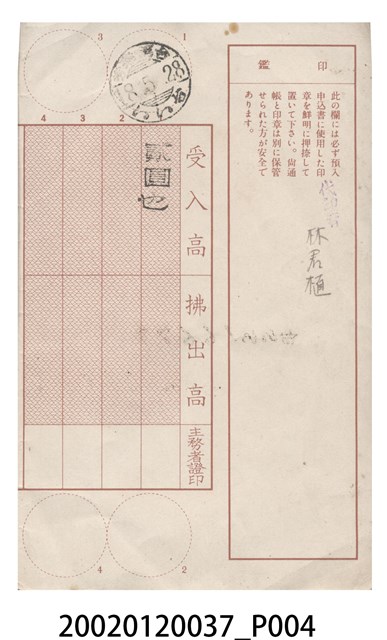 印鑑
此の欄には必ず預入
申込書に使用した印
章を鮮明に押捺して
置いて下さい。尙通
帳と印章は別に保管
せられた方が安全で
あります。
林君植
1
3
28
2
3
4
受入高
貳圓也
拂出高
主務者證印
2
4
20020120037_P004